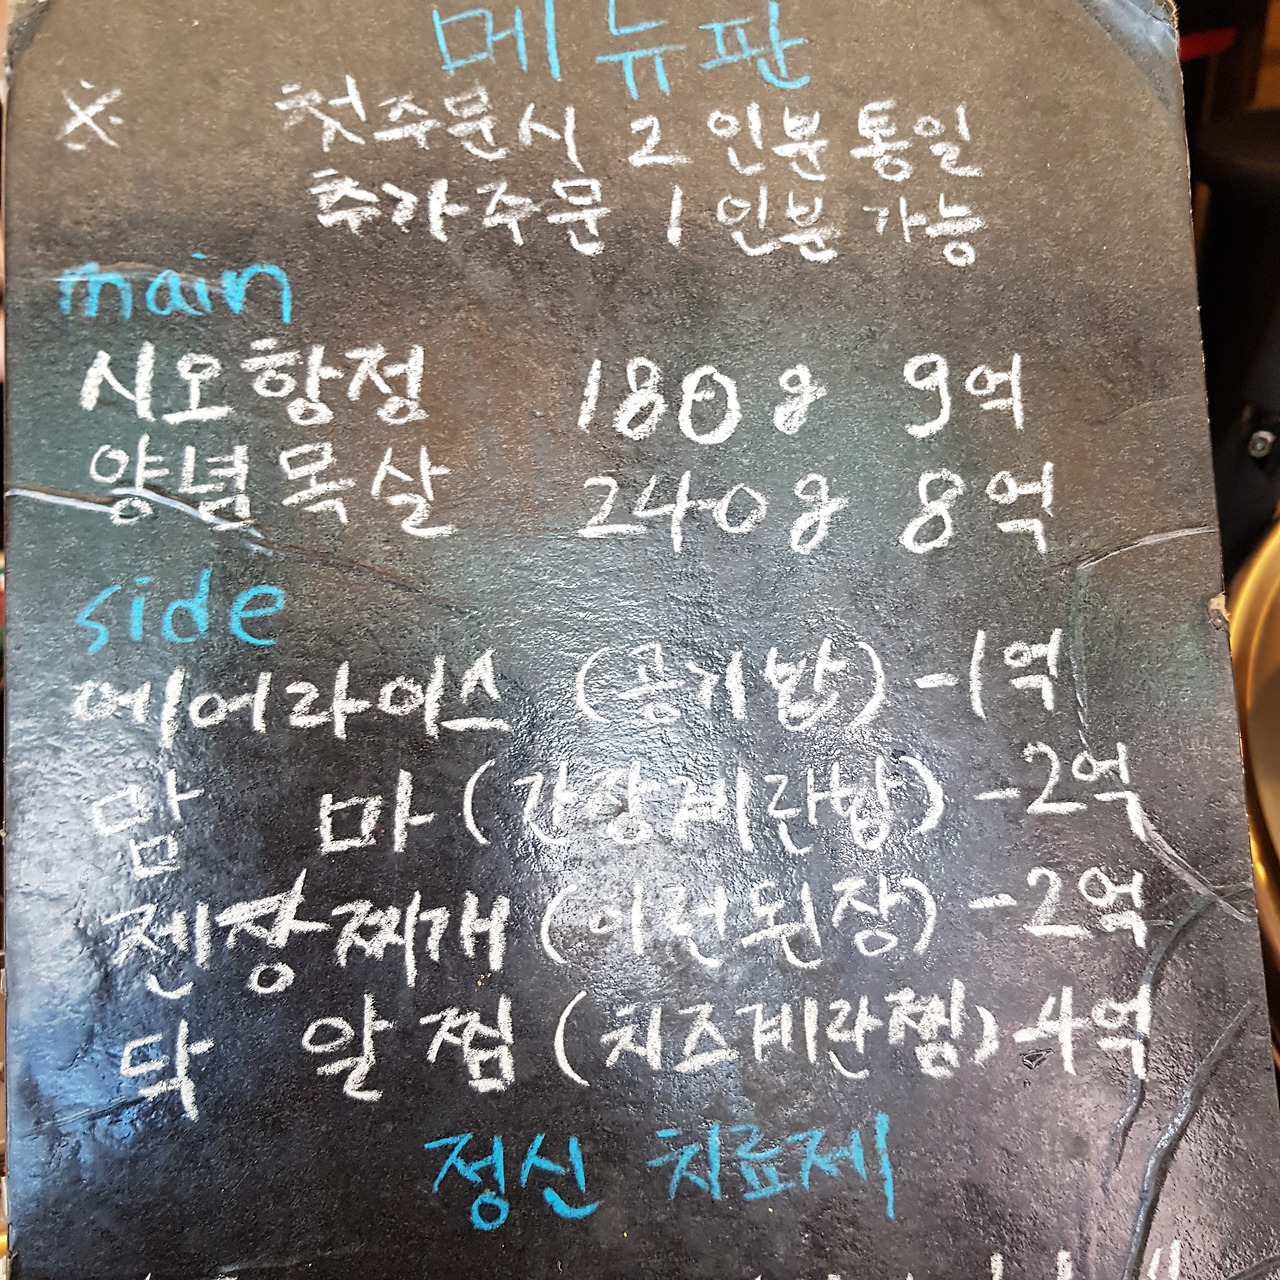 메뉴판
※ 첫주문시 2인분 통일
추가주문 1인분 가능
main
시오항정 180g 9억
양념목살 240g 8억
side
에어라이스 (공기밥) -1억
맘마 (간장계란밥) -2억
젠장찌개 (이런된장) -2억
닥알찜 (치즈계란찜) -4억
정신 치료제